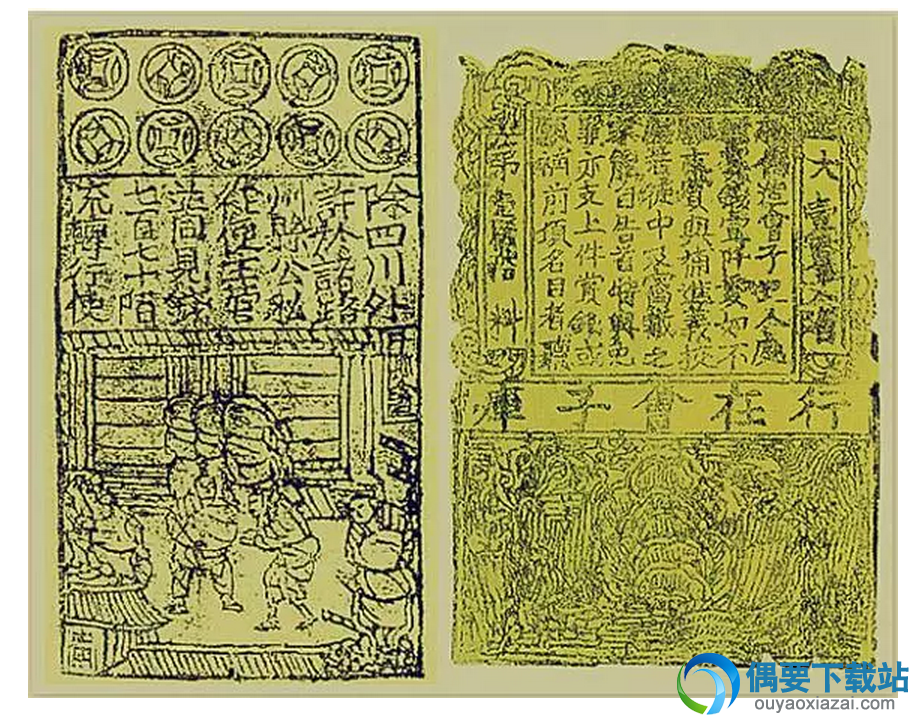 除四川外
許於諸路
州縣公私
從便主管
並同見錢
七百七十陌
流轉行使
大壹貫文省
敕偽造會子犯人處
斬賞錢壹阡貫如不
願支賞與補進義校
尉若徒中及窩藏之
家能自告首特與免
罪亦支上件賞錢或
願補前項名目者聽
第壹料
行在會子庫
偶要下载站
ouyaoxiazai.com